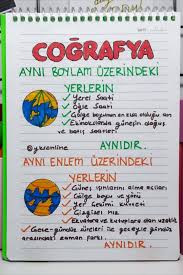 COĞRAFYA
AYNI BOYLAM ÜZERİNDEKİ
YERLERİN
Yerel Saati
Öğle Saati
Gölge boyunun en kısa olduğu an
Ekinokslarda güneşin doğuş
ve batış saatleri
@yksonline
AYNIDIR.
AYNI ENLEM ÜZERİNDEKİ
YERLERİN
Güneş ışınlarını alma açıları
Gölge boyu ve yönü
Yer çekimi kuvveti
Çizgisel hız
Ekvatora ve kutuplara olan uzaklık
Gece-gündüz süreleri ile gece gündüz
arasındaki zaman farkı.
AYNIDIR.